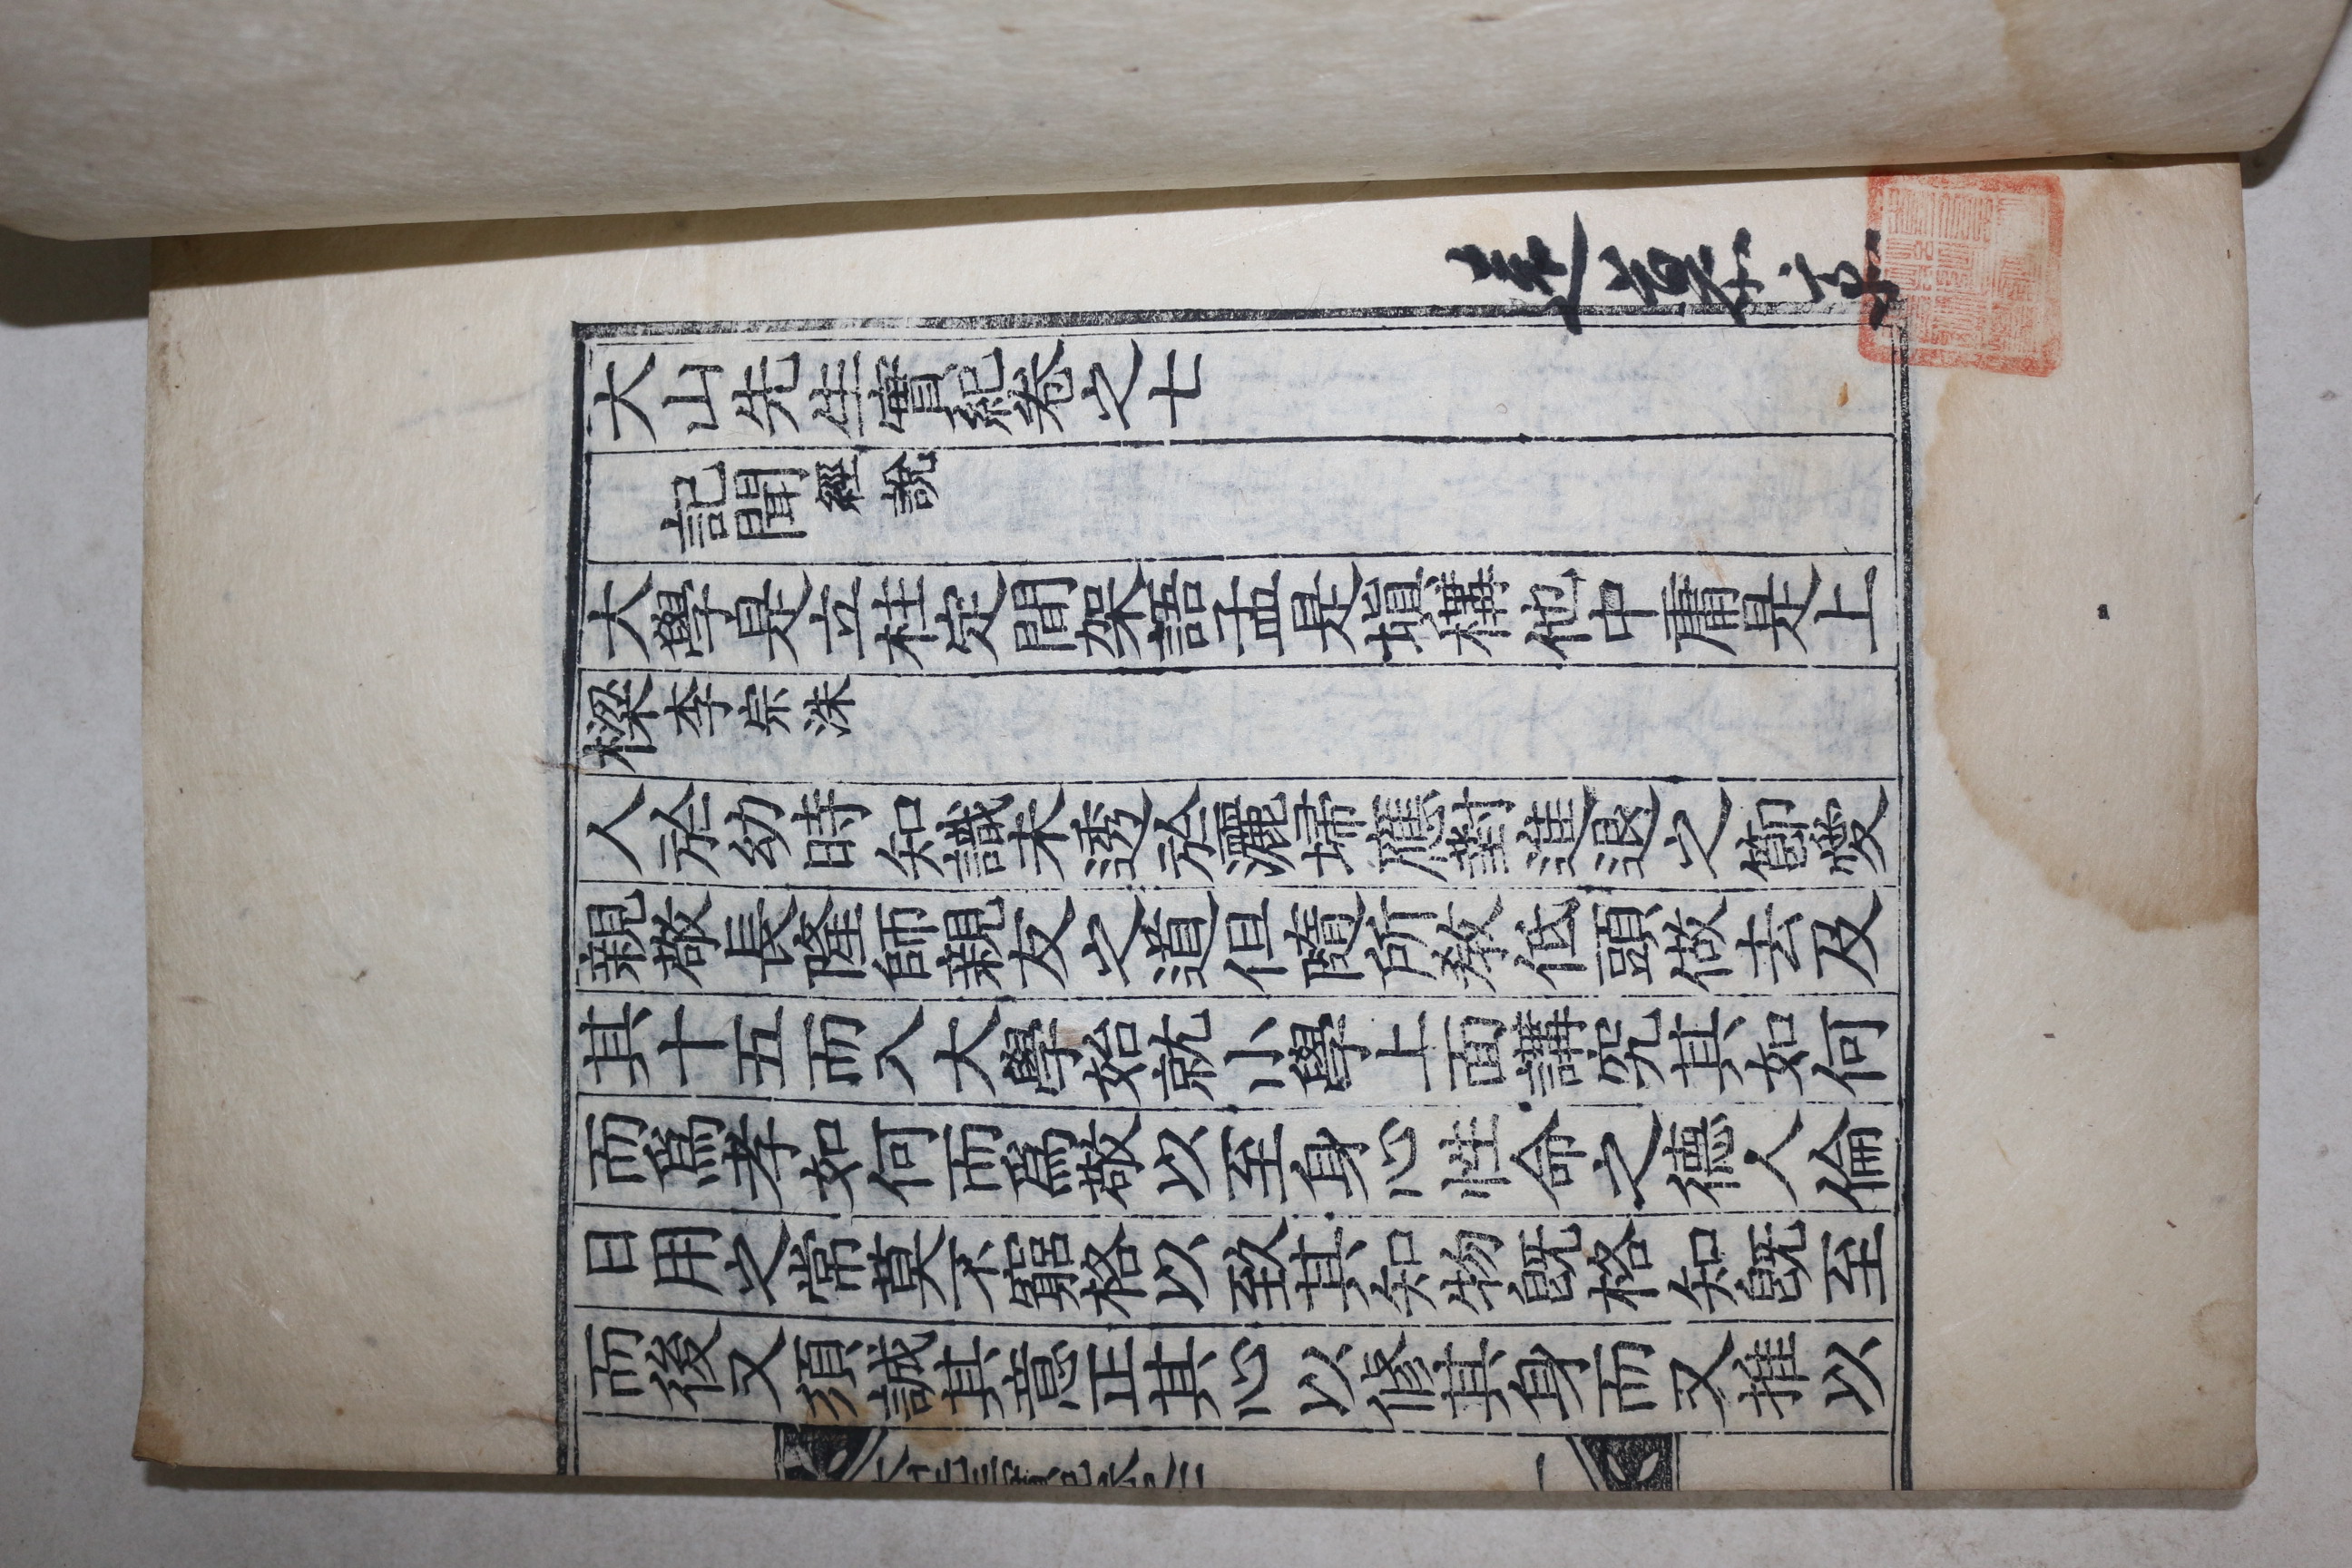 大山先生實紀卷之七
記聞經說
大學是立柱定間架語孟是塡構他中庸是上
樑李宗洙
人於幼時知識未透於灑掃應對進退之節愛
親敬長隆師親友之道但隨所教低頭做去及
其十五而入大學始就小學上面講究其如何
而爲孝如何而爲敬以至身心性命之德人倫
日用之常莫不窮格以致其知物旣格知旣至
而後又須誠其意正其心以修其身而又推以